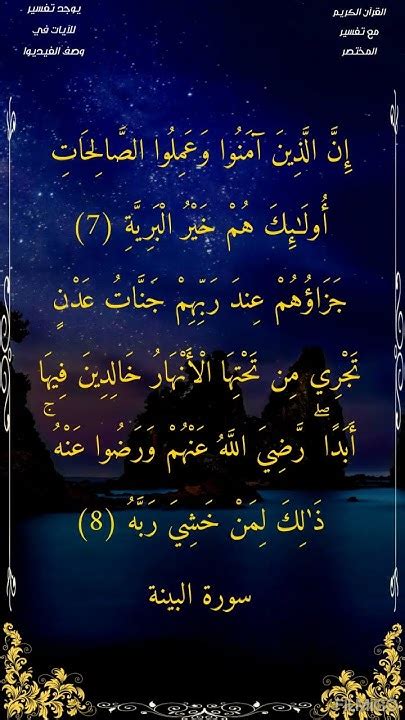 القرآن الكريم
مع تفسير
المختصر
يوجد تفسير
للآيات في
وصف الفيديوا
إِنَّ الَّذِينَ آمَنُوا وَعَمِلُوا الصَّالِحَاتِ
أُولَٰئِكَ هُمْ خَيْرُ الْبَرِيَّةِ (7)
جَزَاؤُهُمْ عِندَ رَبِّهِمْ جَنَّاتُ عَدْنٍ
تَجْرِي مِن تَحْتِهَا الْأَنْهَارُ خَالِدِينَ فِيهَا
أَبَدًا ۖ رَّضِيَ اللَّهُ عَنْهُمْ وَرَضُوا عَنْهُ ۚ
ذَٰلِكَ لِمَنْ خَشِيَ رَبَّهُ (8)
سورة البينة